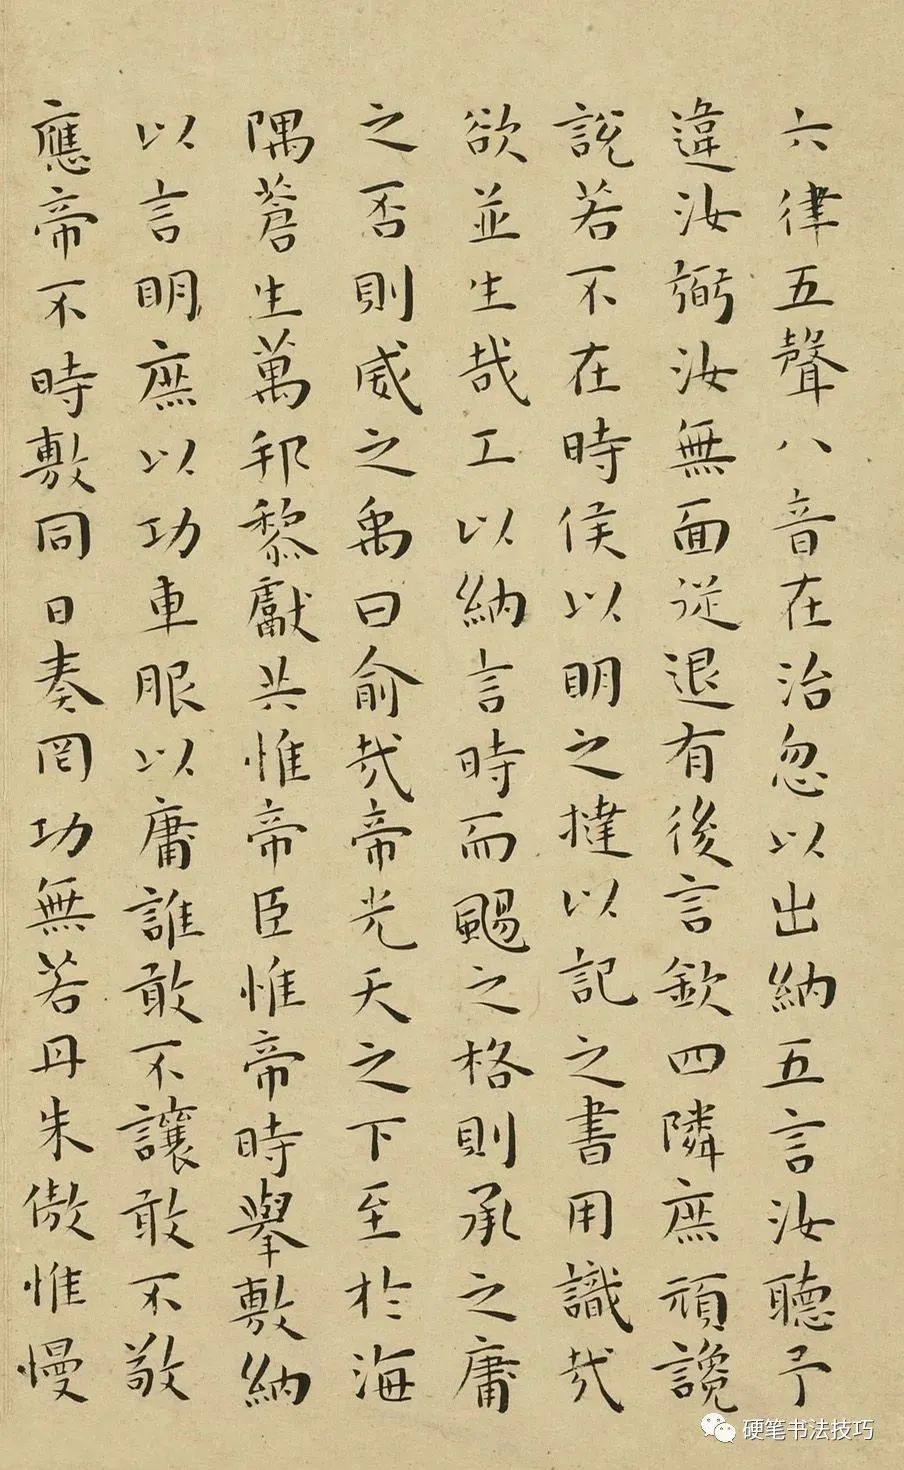 六律五聲八音在治忽以出納五言汝聽予
違汝弼汝無面從退有後言欽四隣庶頑讒
說若不在時侯以明之撻以記之書用識哉
欲並生哉工以納言時而颺之格則承之庸
之否則威之禹曰俞哉帝光天之下至於海
隅蒼生萬邦黎獻共惟帝臣惟帝時舉敷納
以言明庶以功車服以庸誰敢不讓敢不敬
應帝不時敷同日奏罔功無若丹朱傲惟慢
硬笔书法技巧